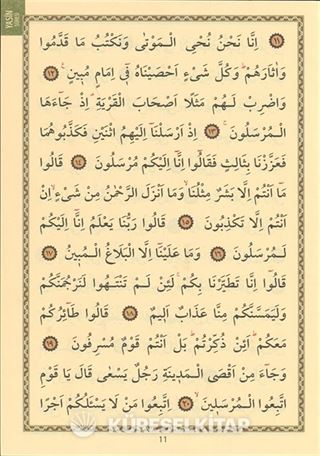 YASİN SURESİ
﴿١١﴾ اِنَّا نَحْنُ نُحْيِ الْمَوْتٰى وَنَكْتُبُ مَا قَدَّمُوا
وَاٰثَارَهُمْ وَكُلَّ شَيْءٍ اَحْصَيْنَاهُ فٖٓي اِمَامٍ مُبٖينٍ ﴿١٢﴾
وَاضْرِبْ لَهُمْ مَثَلًا اَصْحَابَ الْقَرْيَةِ اِذْ جَٓاءَهَا
الْمُرْسَلُونَ ﴿١٣﴾ اِذْ اَرْسَلْنَٓا اِلَيْهِمُ اثْنَيْنِ فَكَذَّبُوهُمَا
فَعَزَّزْنَا بِثَالِثٍ فَقَالُٓوا اِنَّٓا اِلَيْكُمْ مُرْسَلُونَ ﴿١٤﴾ قَالُوا
مَٓا اَنْتُمْ اِلَّا بَشَرٌ مِثْلُنَا وَمَٓا اَنْزَلَ الرَّحْمٰنُ مِنْ شَيْءٍ اِنْ
اَنْتُمْ اِلَّا تَكْذِبُونَ ﴿١٥﴾ قَالُوا رَبُّنَا يَعْلَمُ اِنَّٓا اِلَيْكُمْ
لَمُرْسَلُونَ ﴿١٦﴾ وَمَا عَلَيْنَٓا اِلَّا الْبَلَاغُ الْمُبٖينُ ﴿١٧﴾
قَالُٓوا اِنَّا تَطَيَّرْنَا بِكُمْ لَئِنْ لَمْ تَنْتَهُوا لَنَرْجُمَنَّكُمْ
وَلَيَمَسَّنَّكُمْ مِنَّا عَذَابٌ اَلٖيمٌ ﴿١٨﴾ قَالُوا طَٓائِرُكُمْ
مَعَكُمْ اَئِنْ ذُكِّرْتُمْ بَلْ اَنْتُمْ قَوْمٌ مُسْرِفُونَ ﴿١٩﴾
وَجَٓاءَ مِنْ اَقْصَا الْمَدٖينَةِ رَجُلٌ يَسْعٰى قَالَ يَا قَوْمِ
اتَّبِعُوا الْمُرْسَلٖينَ ﴿٢٠﴾ اِتَّبِعُوا مَنْ لَا يَسْـَٔلُكُمْ اَجْرًا
KÜRESELKİTAP
11